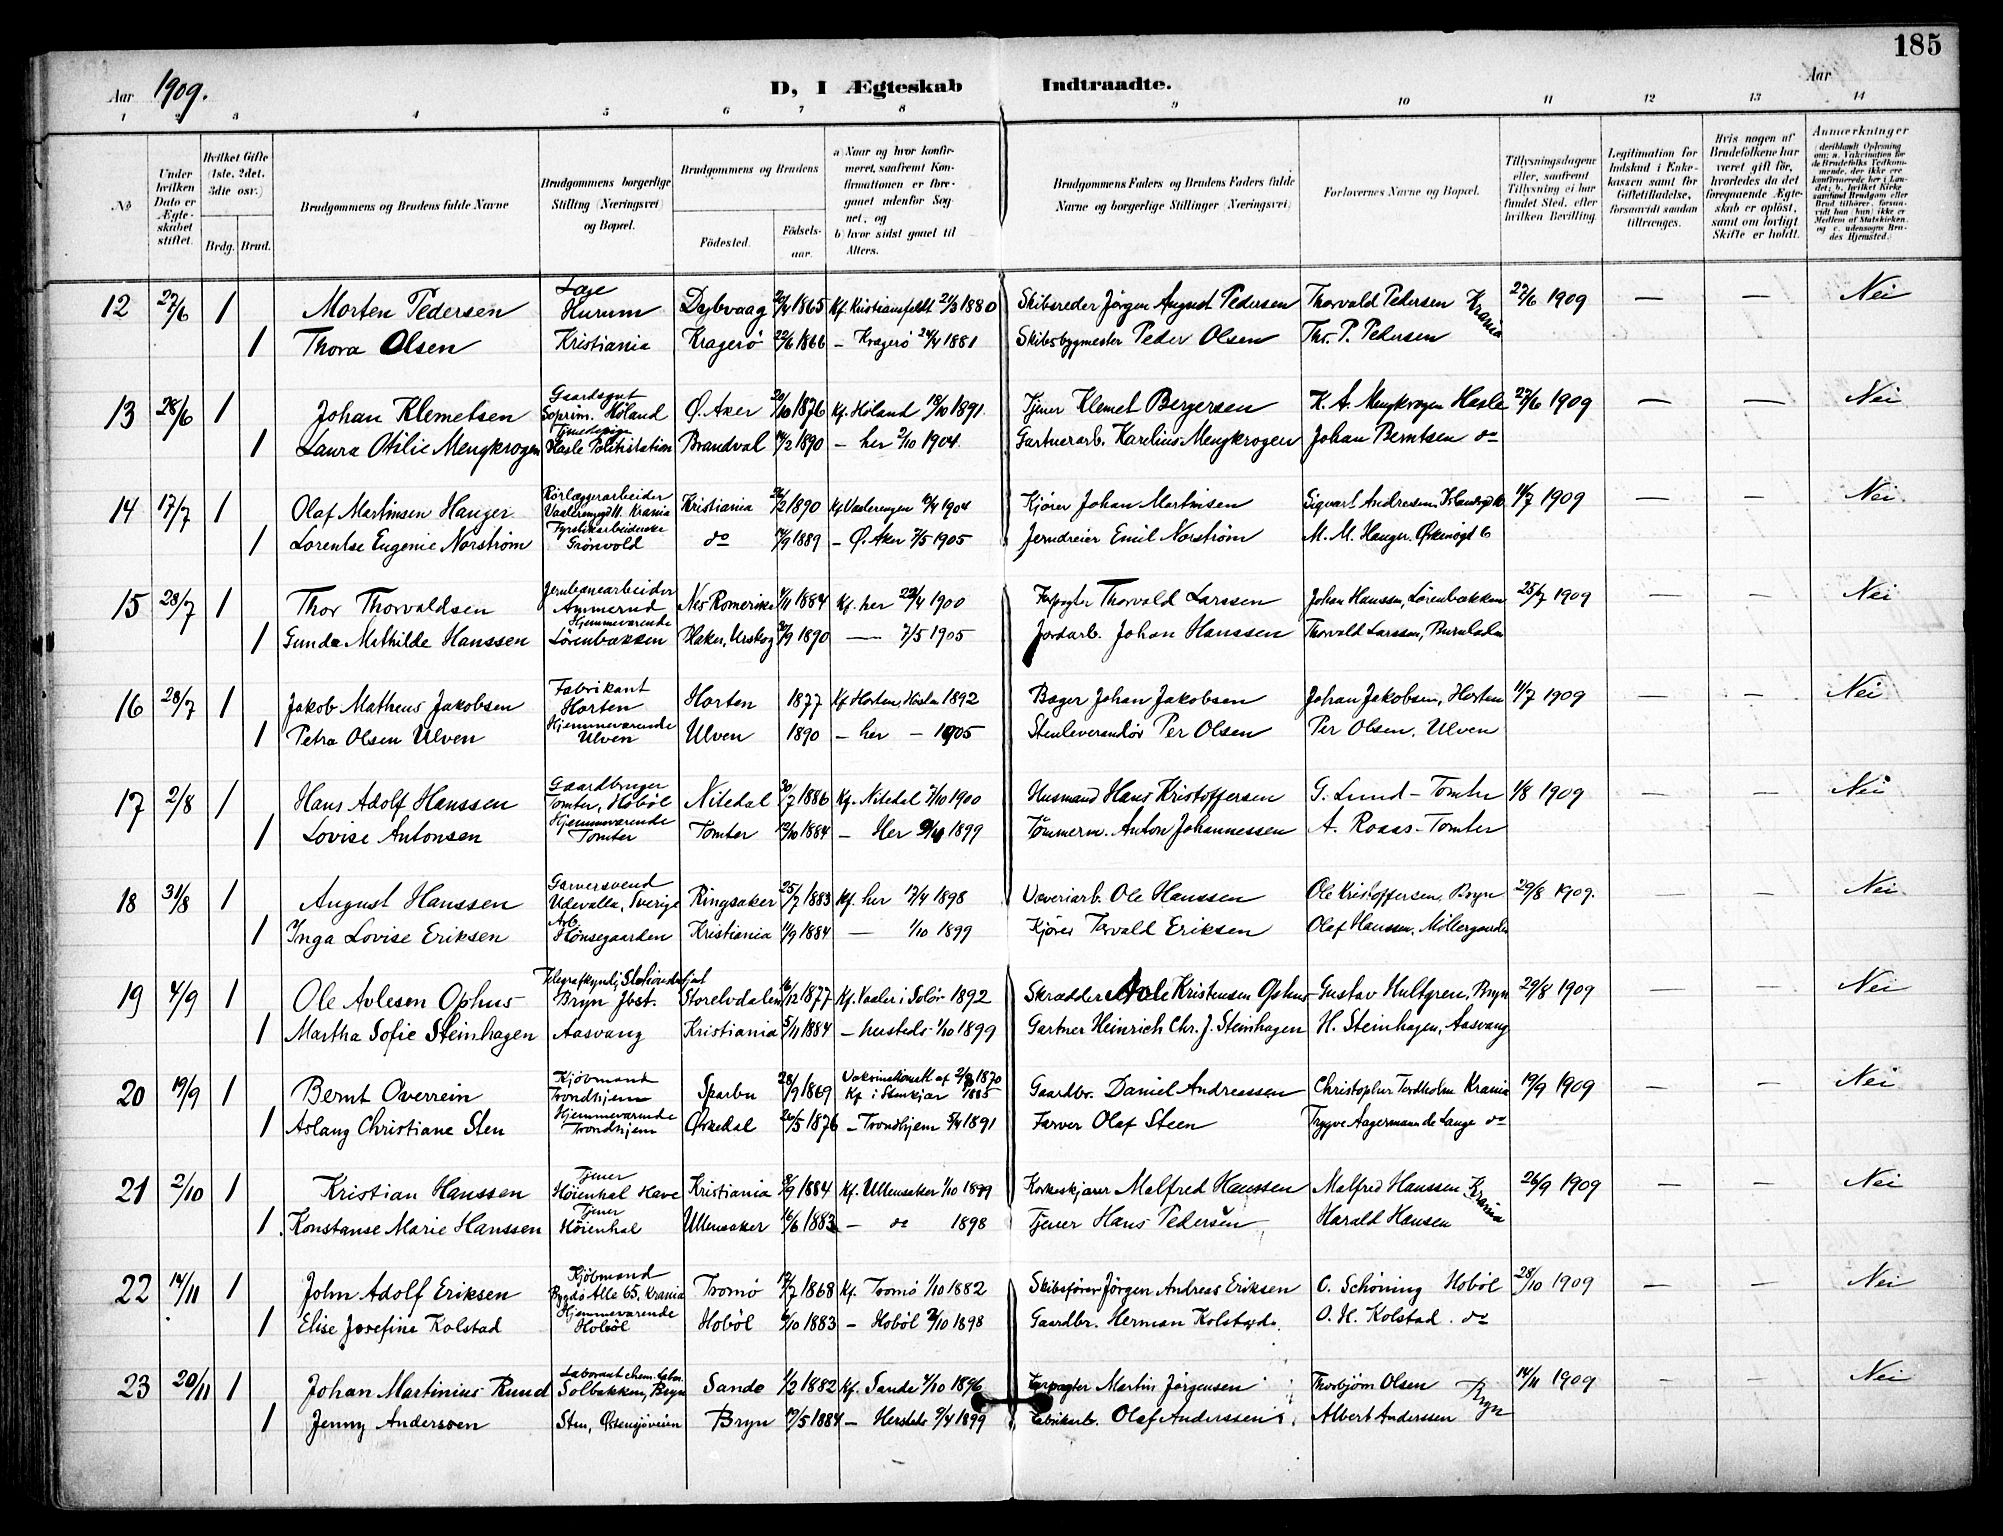 185
Aar 1909. D, I Ægteskab Indtraadte. Aar
1 2 3 4 5 6 7 8 9 10 11 12 13 14
No
Under hvilken Dato er Ægteskabet stiftet.
Hvilket Gifte (1ste, 2det, 3die osv.)
Brdg. Brud.
Brudgommens og Brudens fulde Navne
Brudgommens borgerlige Stilling (Næringsvei) og Bopæl.
Brudgommens og Brudens
Fødested. Fødselsaar.
a) Naar og hvor konfirmeret, saafremt Konfirmationen er foregaaet udenfor Sognet; og
b) hvor sidst gaaet til Alters.
Brudgommens Faders og Brudens Faders fulde Navne og borgerlige Stillinger (Næringsvei)
Forlovernes Navne og Bopæl.
Tillysningsdagene eller, saafremt Tillysning ei har fundet Sted, efter hvilken Bevilling
Legitimation for Indskud i Enkekassen samt for Giftetilladelse, forsaavidt saadan tiltrænges.
Hvis nogen af Brudefolkene har været gift før, hvorledes da det foregaaende Ægteskab er opløst, samt om lovligt Skifte er holdt.
Anmærkninger (deriblandt Oplysning om: a. Vakcination for de Brudefolks Vedkommende, der ikke ere konfirmerede her i Landet; b. hvilket Kirkesamfund Brudgom eller Brud tilhører, forsaavidt han (hun) ikke er Medlem af Statskirken, og c. udensogns Brudes Hjemsted.)
12 27/6 1 Morten Pedersen Hurum Dybvaag 1865 Kf. Kristiansfeldt 21/3 1880 Skibsreder Jörgen August Pedersen Thorvald Pedersen Krania 27/6 1909 — — Nei
1 Thora Olsen Kristiania Kragerö 22/6 1866 — Kragerö 24/4 1881 Skibsbygmester Peder Olsen Thr. P. Pedersen
13 28/6 1 Johan Klemetsen Gaardsgut Höland Ø. Aker 20/10 1876 Kf. Höland 18/10 1891 Tjener Klemet Bergersen K. A. Mengkrogen Hasle 27/6 1909 — — Nei
1 Laura Otilie Mengkrogen Tjenestepige Hasle Politistation Brandval 14/2 1890 — her 2/10 1904. Gartnerarb. Karelius Mengkrogen Johan Berntsen do
14 17/7 1 Olaf Martinsen Hauger Rörlæggerarbeider Krania Kristiania 1890 Kf Vaalerengen 10/4 1904 Kjörer Johan Martinsen Sigvart Andresen 11/7 1909 — — Nei
1 Lorentse Eugenie Norström Fyrstikarbeiderske Grönvold do 1889 — Ø. Aker 7/5 1905 Jerndreier Emil Norström M. M. Hauger. 6
15 28/7 1 Thor Thorvaldsen Jernbanearbeider Ammerud Nes Romerike 1884 Kf. her 22/4 1900 Forpagter Thorvald Larssen Johan Hanssen, Lörenbakken 25/7 1909 — — Nei
1 Gunda Mathilde Hanssen Hjemmeværende Lörenbakken Blaker, Urskog 30/9 1890 — 7/5 1905 Jordarb. Johan Hanssen Thorvald Larssen,
16 28/7 1 Jakob Matheus Jakobsen Fabrikant Horten Horten 1877 Kf Horten, 1892 Bager Johan Jakobsen Johan Jakobsen, Horten 11/7 1909 — — Nei
1 Petra Olsen Ulven Hjemmeværende Ulven Ulven 1890 — her — 1905 Stenleverandör Per Olsen Per Olsen, Ulven
17 2/8 1 Hans Adolf Hanssen Gaardbruger Tomter, Hoböl Nitedal 30/7 1886 Kf. Nitedal 7/10 1900 Husmand Hans Kristoffersen G. Lund — Tomter 1/8 1909 — — Nei
1 Lovise Antonsen Hjemmeværende Tomter Tomter 12/10 1884 — Her 1899 Tömmerm. Anton Johannessen A. Roaas — Tomter
18 31/8 1 August Hanssen Garversvend Udevalla, Sverige Ringsaker 25/7 1883 Kf. her 17/4 1898 Væveriarb. Ole Hanssen Ole Kristoffersen, Bryn 29/8 1909. — — Nei
1 Inga Lovise Eriksen Arb. Hönsegaarden Kristiania 1884 — 1/10 1899 Kjörer Torvald Eriksen Olaf Hanssen,
19 4/9 1 Ole Avlesen Ophus Bryn Jbst. Storelvdalen 16/12 1877 Kf. Vaaler i Solör 1892 Skrædder Avle Kristensen Ophus Gustav Hultgren, Bryn 29/8 1909 — — Nei
1 Martha Sofie Steinhagen Aasvang Kristiania 5/11 1884 — herstds 1/10 1899 Gartner Heinrich Chr. J. Steinhagen H. Steinhagen, Aasvang
20 19/9 1 Bernt Overrein Kjöbmand Trondhjem Sparbu 28/9 1869 Vakcinationsatt af 1870 Kf. i Stenkjær 1885 Gaardbr. Daniel Andreassen Christopher Tordholm Krania 19/9 1909 — — Nei
1 Aslaug Christiane Sten Hjemmeværende Trondhjem Ørkedal 26/5 1876 — Trondhjem 5/4 1891 Farver Olaf Steen Trygve Aagermann de Lange do
21 2/10 1 Kristian Hanssen Tjener Höienhal Have Kristiania 1884 Kf. Ullensaker 1/10 1899 Korkeskjærer Malfred Hanssen Malfred Hanssen Krania 26/9 1909 — — Nei
1 Konstanse Marie Hanssen Tjener Höienhal Ullensaker 16/6 1883 — do 1898 Tjener Hans Pedersen Harald Hansen
22 14/11 1 John Adolf Eriksen Kjöbmand Bygdö Alle 65, Krania Tromö 17/7 1868 Kf. Tromö 1/10 1882 Skibsförer Jörgen Andreas Eriksen O. Schöning Hoböl 28/10 1909 — — Nei
1 Elise Josefine Kolstad Hjemmeværende Hoböl Hoböl 1883 — Hoböl 2/10 1898 Gaardbr. Herman Kolstad O. H. Kolstad. do
23 20/11 1 Johan Martinius Ruud Laborant Solbakken, Bryn Sande 1/2 1882 Kf. Sande 4/10 1896 Forpagter Martin Jörgensen Thorbjörn Olsen Bryn 14/11 1909 — Nei
1 Jenny Anderssen Sten, Østensjöveien Bryn 17/5 1884 — Herstds 9/4 1899 Fabrikarb. Olaf Anderssen Albert Anderssen